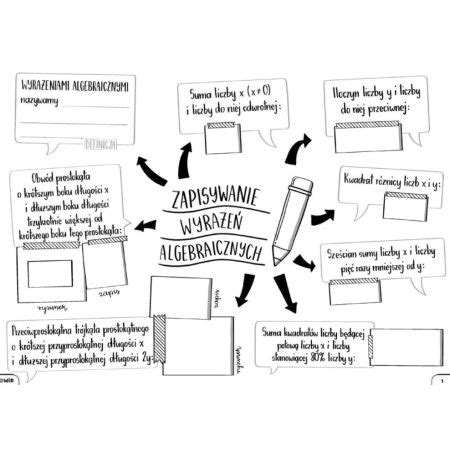 WYRAŻENIAMI ALGEBRAICZNYMI
nazywamy
DEFINICJA
Suma liczby x (x≠0)
i liczby do niej odwrotnej:
Iloczyn liczby y i liczby
do niej przeciwnej:
Obwód prostokąta
o krótszym boku długości x
i dłuższym boku długości
trzykrotnie większej od
krótszego boku tego prostokąta:
rysunek
zapis
ZAPISYWANIE
WYRAŻEŃ
ALGEBRAICZNYCH
Kwadrat różnicy liczb x i y:
Sześcian sumy liczby x i liczby
pięć razy mniejszej od y:
Przeciwprostokątna trójkąta prostokątnego
o krótszej przyprostokątnej długości x
i dłuższej przyprostokątnej długości 2y:
zapis
rysunek
Suma kwadratów liczby będącej
połową liczby x i liczby
stanowiącej 80% liczby y:
1